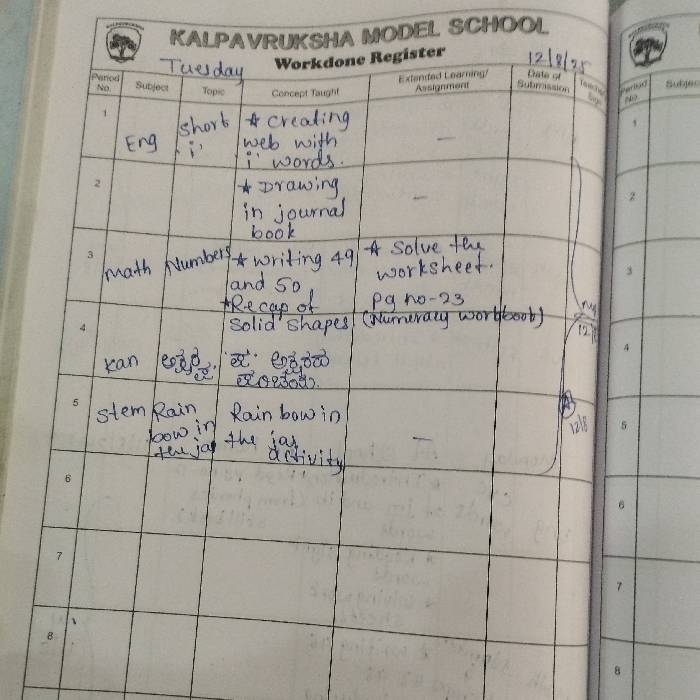 KALPAVRUKSHA MODEL SCHOOL
Workdone Register
Tuesday
12/8/25
Period No.
Subject
Topic
Concept Taught
Extended Learning/ Assignment
Date of Submission
1
Eng
short
'i'
* creating
web with
'i' words.
-
2
* Drawing
in journal
book
-
3
Math
Numbers
* writing 49
and 50
* Recap of
solid shapes
* Solve the
worksheet.
pg no-23
(Numeracy workbook)
4
Kan
5
Stem
Rain
bow in
the jar
Rain bow in
the jar
activity
-
12/8
6
7
8
Period
No.
Subjec
1
2
3
4
5
6
7
8